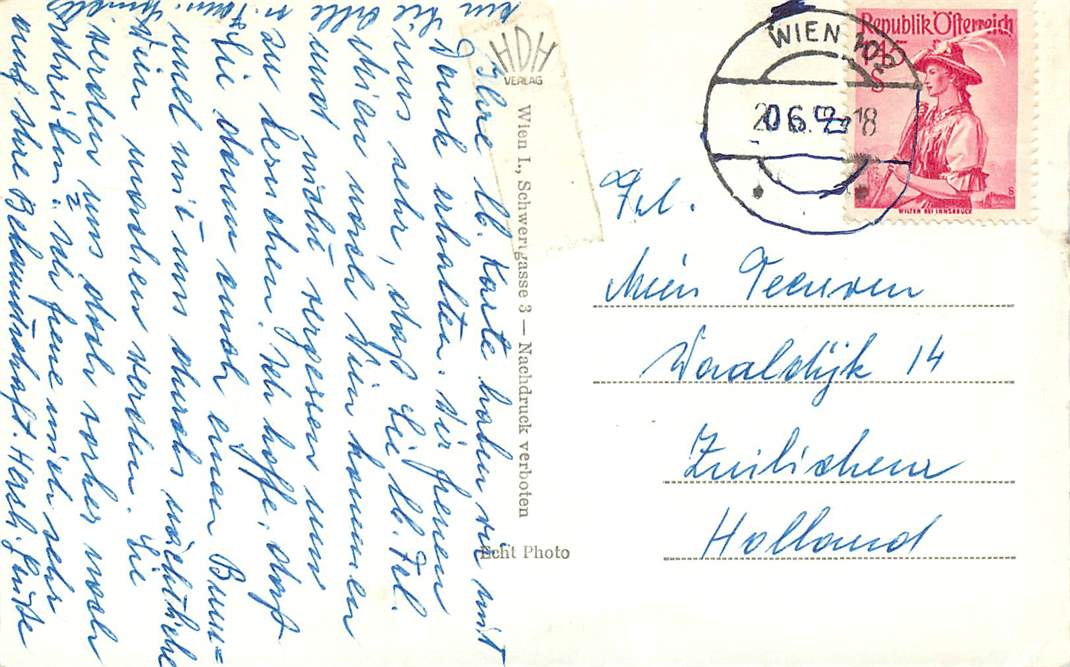 HDH
VERLAG
Wien I., Schwertgasse 3 — Nachdruck verboten
Echt Photo
Ihre lb. Karte haben wir mit
Dank erhalten. Wir freuen
uns sehr, daß Sie lb. Frl.
Mien nach Wien kommen
und nicht vergessen uns
zu besuchen. Ich hoffe, daß
Sie dann auch einen Bum=
mel mit uns durchs nächtliche
Wien machen werden. Sie
werden uns doch vorher noch
schreiben? Ich freue mich sehr
auf Ihre Bekanntschaft. Herzl. Grüße
an Sie
alle
v. Fam.
WIEN 102
20.6. 18
Republik Österreich
S
WILTEN BEI INNSBRUCK
Frl.
Mien Teeuwen
Waaldijk 14
Zuilichem
Holland